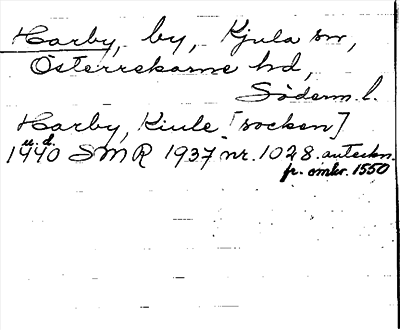 Harby, by, Kjula sn,
Österrekarne hd,
Söderm. l.
Harby, Kiule [socken]
u. d.
1440 SMR 1937 nr. 1028. anteckn.
fr. omkr. 1550